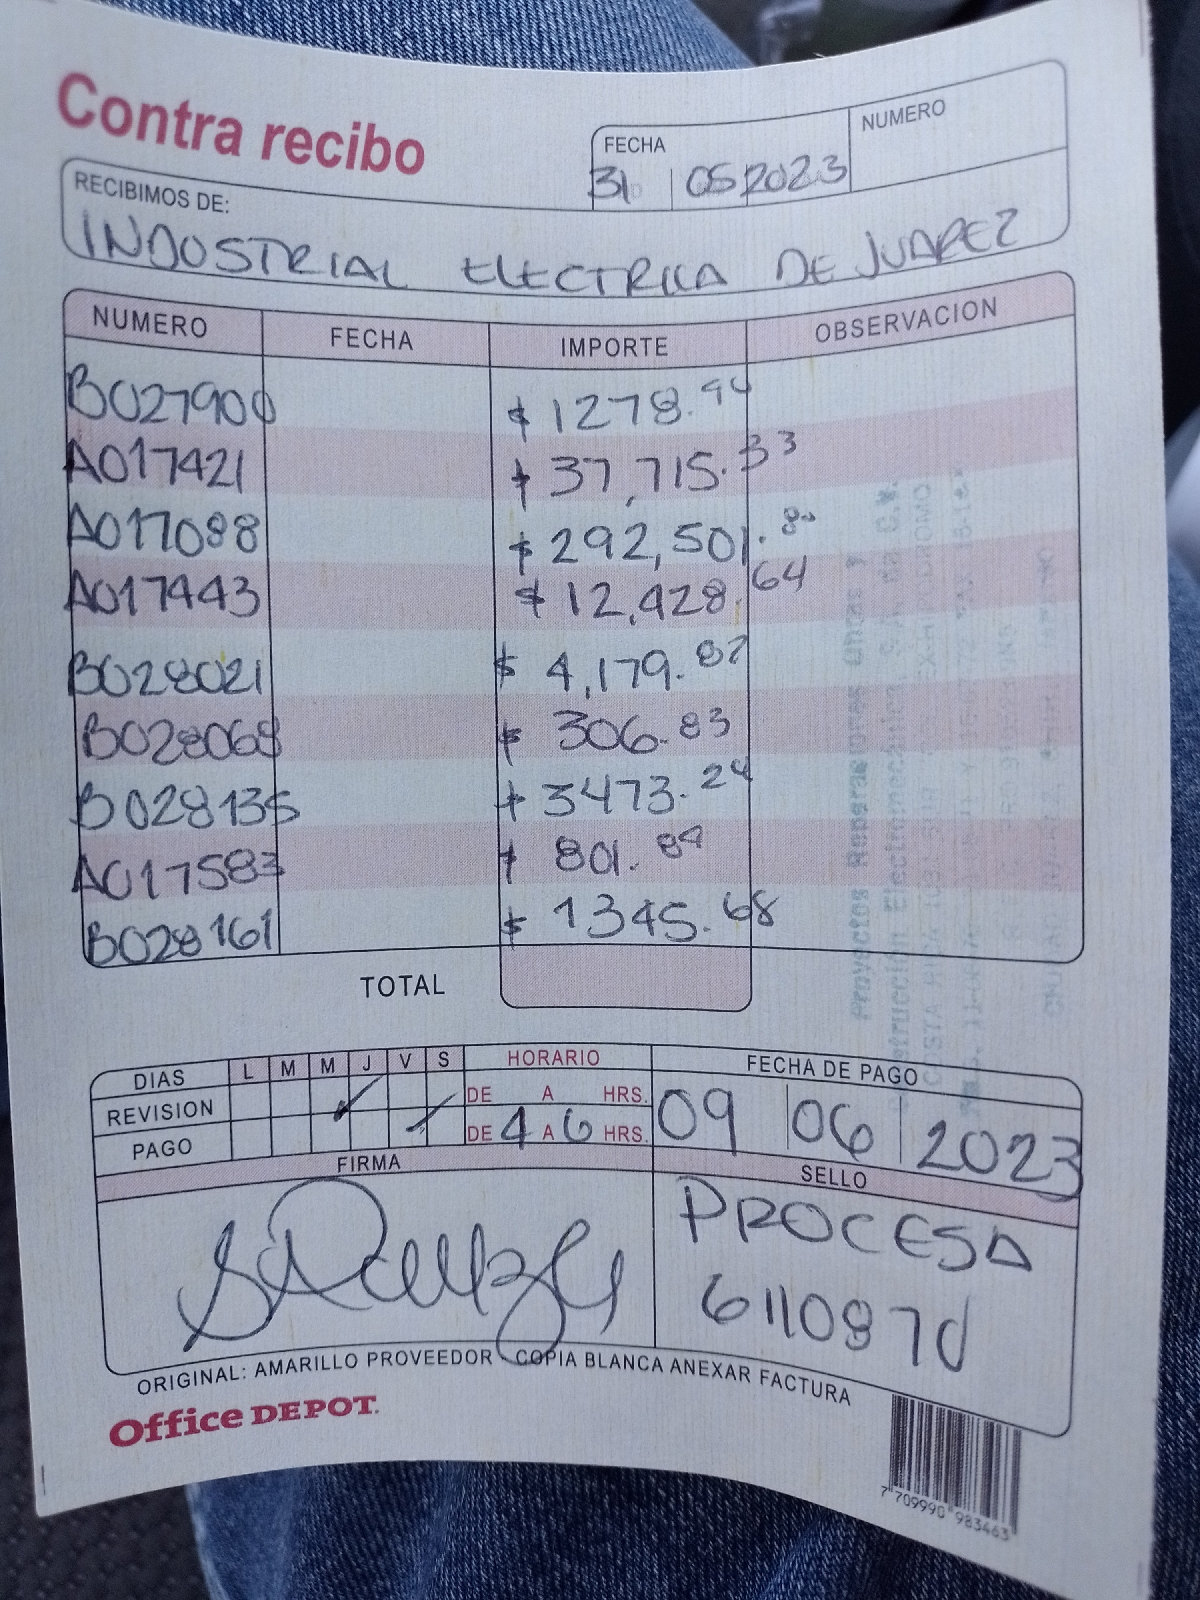 Contra recibo
FECHA
NUMERO
31 05 2023
RECIBIMOS DE:
INDUSTRIAL ELECTRICA DE JUAREZ
NUMERO FECHA IMPORTE OBSERVACION
B027900 $ 1278.94
A017421 $ 37,715.33
A017088 $ 292,501.80
A017443 $ 12,428.64
B028021 $ 4,179.87
B028068 $ 306.83
B028135 $ 3473.24
A017583 $ 801.89
B028161 $ 1345.68
TOTAL
DIAS L M M J V S HORARIO FECHA DE PAGO
REVISION DE A HRS.
PAGO DE 4 A 6 HRS. 09 06 2023
FIRMA SELLO
PROCESA
ORIGINAL: AMARILLO PROVEEDOR - COPIA BLANCA ANEXAR FACTURA
Office DEPOT.
7 709990 983463